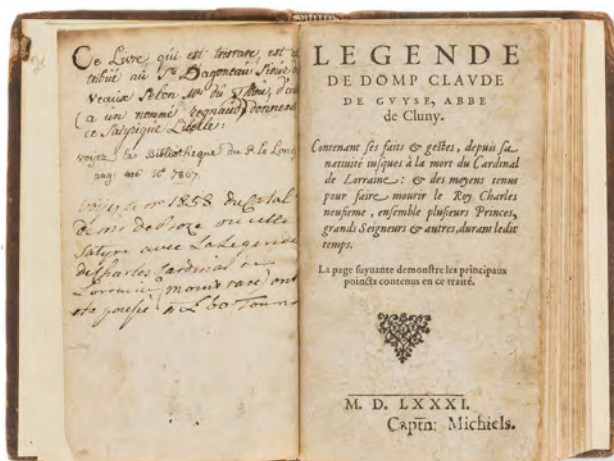 Ce Livre, qui est tresrare, est a
tribué au Sr Dagoneau Sieur de
veaux selon Mr du Thou, d'au
(a un nommé Regnaud) donnent
ce satyrique Libelle:
voyez la Bibliotheque du P. Le Long
pag. 406 No 7867.
voyez le no 1858 du Catal
de mr de Boze ou cette
Satyre avec La Legende
de Charles Cardinal de
Lorraine (moins rare) ont
eté
LEGENDE
DE DOMP CLAVDE
DE GVYSE, ABBE
de Cluny.
Contenant ses faits & gestes, depuis sa
natiuité iusques à la mort du Cardinal
de Lorraine: & des moyens tenus
pour faire mourir le Roy Charles
neufieme, ensemble plusieurs Princes,
grands Seigneurs & autres, durant ledit
temps.
La page suyuante demonstre les principaux
poincts contenus en ce traité.
M. D. LXXXI.
Captn: Michiels.